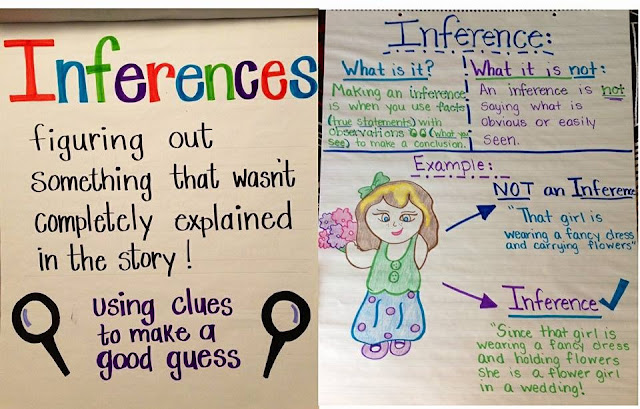 Inferences
figuring out
something that wasn't
completely explained
in the story!
using clues
to make a
good guess
Inference:
What is it?
Making an inference
is when you use facts
(true statements) with
observations (what you
see) to make a conclusion.
What it is not:
An inference is not
saying what is
obvious or easily
seen.
Example:
NOT an Inference
"That girl is
wearing a fancy dress
and carrying flowers"
Inference
"Since that girl is
wearing a fancy dress
and holding flowers
she is a flower girl
in a wedding!